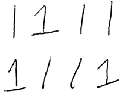 1 1 1 1
1 1 1 1